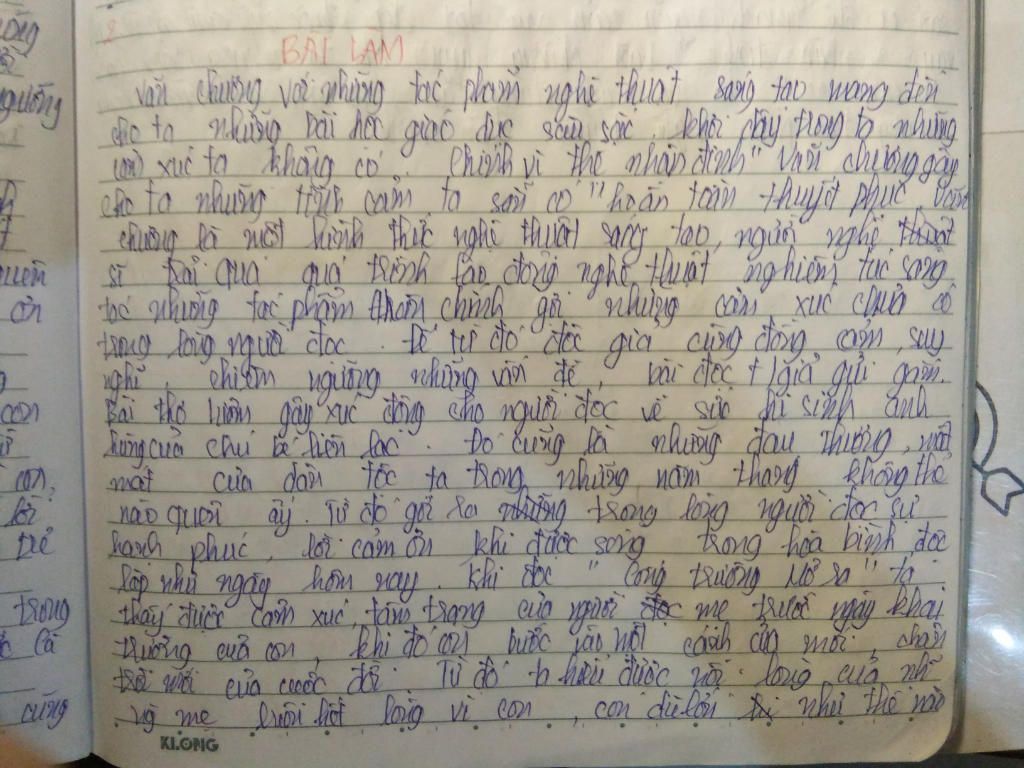 BÀI LÀM
Văn chương với những tác phẩm nghệ thuật sáng tạo mang đến
cho ta những bài học giáo dục sâu sắc. khơi dậy trong ta những
cảm xúc ta không có. Chính vì thế nhận định "Văn chương gây
cho ta những tình cảm ta sẵn có" hoàn toàn thuyết phục. Văn
chương là một hình thức nghệ thuật sáng tạo, người nghệ
sĩ trải qua quá trình lao động nghệ thuật nghiêm túc sáng
tác những tác phẩm chính gợi những cảm xúc chưa có
trong lòng người đọc. Để từ đó độc giả cùng đồng cảm, suy
nghĩ, chiêm ngưỡng những vấn đề, bài đọc t/giả gửi gắm.
Bài thơ luôn gây xúc động cho người đọc về sự hi sinh anh
hùng của chú bé liên lạc. Đó cũng là những đau thương, mất
mát của dân tộc ta trong những năm tháng không thể
nào quên ấy. Từ đó gợi ra trong lòng người đọc sự
hạnh phúc, lời cảm ơn khi được sống trong hòa bình độc
lập như ngày hôm nay. khi đọc "Cổng trường mở ra" ta
thấy được cảm xúc, tâm trạng của người mẹ trước ngày khai
trường của con, khi đó con bước vào một cánh cửa mới, chân
trời mới của cuộc đời. Từ đó ta hiểu được nỗi lòng của
mẹ luôn hết lòng vì con, con dù lớn như thế nào
KLONG
ường
guồng
ơn
con
lời
trong
cũng